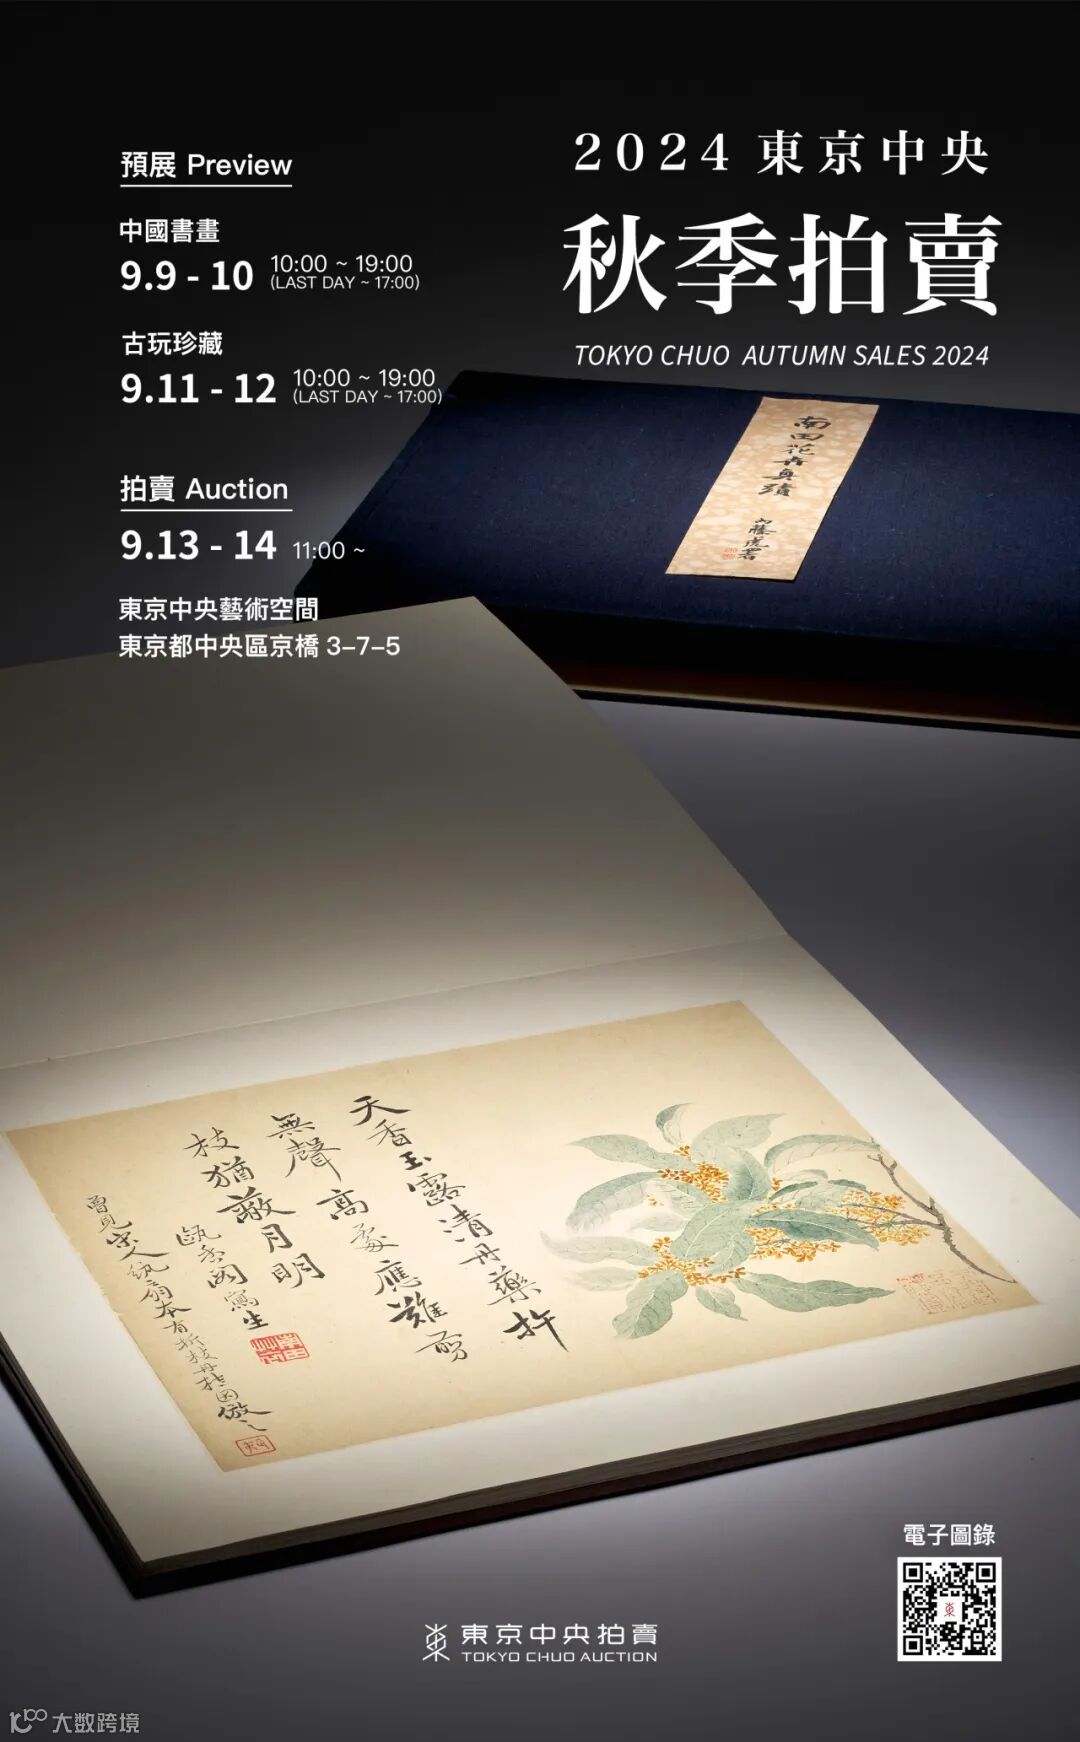 2024 東京中央
秋季拍賣
TOKYO CHUO AUTUMN SALES 2024
預展 Preview
中國書畫
9.9 - 10 10:00 ~ 19:00
(LAST DAY ~ 17:00)
古玩珍藏
9.11 - 12 10:00 ~ 19:00
(LAST DAY ~ 17:00)
拍賣 Auction
9.13 - 14 11:00 ~
東京中央藝術空間
東京都中央區京橋 3-7-5
南田花卉真蹟
內藤虎署
天香玉露清丹藥杵
無聲高處應難剪
枝猶蔽月明
甌香閣寫生
曾見宋人紈扇本有折枝丹桂因倣之
電子圖錄
東京中央拍賣
TOKYO CHUO AUCTION
大数跨境